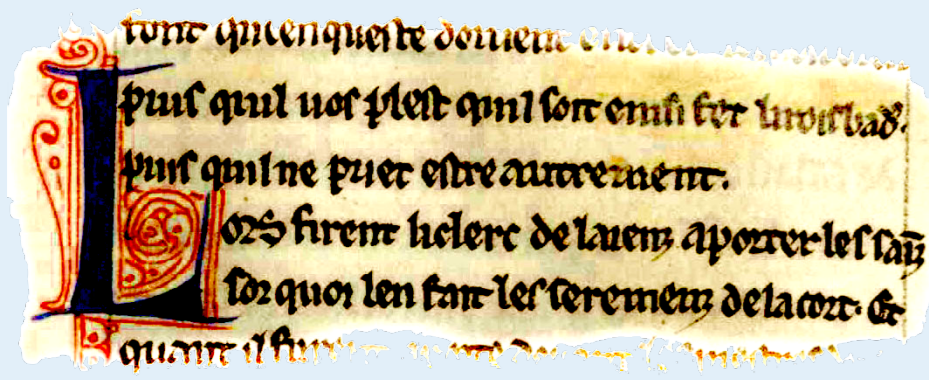 font qui en queste doivent
puis quil vos plest quil soit einsi fet li rois bad̾.
puis quil ne puet estre autrement.
LORS firent li clerc de laienz aporter les sainz
sor quoi len fait les seremenz de la cort. Et
quant il furent